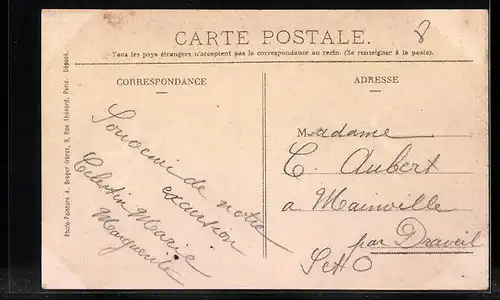 CARTE POSTALE.
Tous les pays étrangers n'acceptent pas la correspondance au recto. (Se renseigner à la poste).
8
CORRESPONDANCE
Souvenir de notre
excursion
Celestin Marie
Marguerite
ADRESSE
Madame
C. Aubert
a Mainville
par Draveil
S et O
Photo-Faintaze A. Breger frères, 9, Rue Thénard, Paris. Déposé.